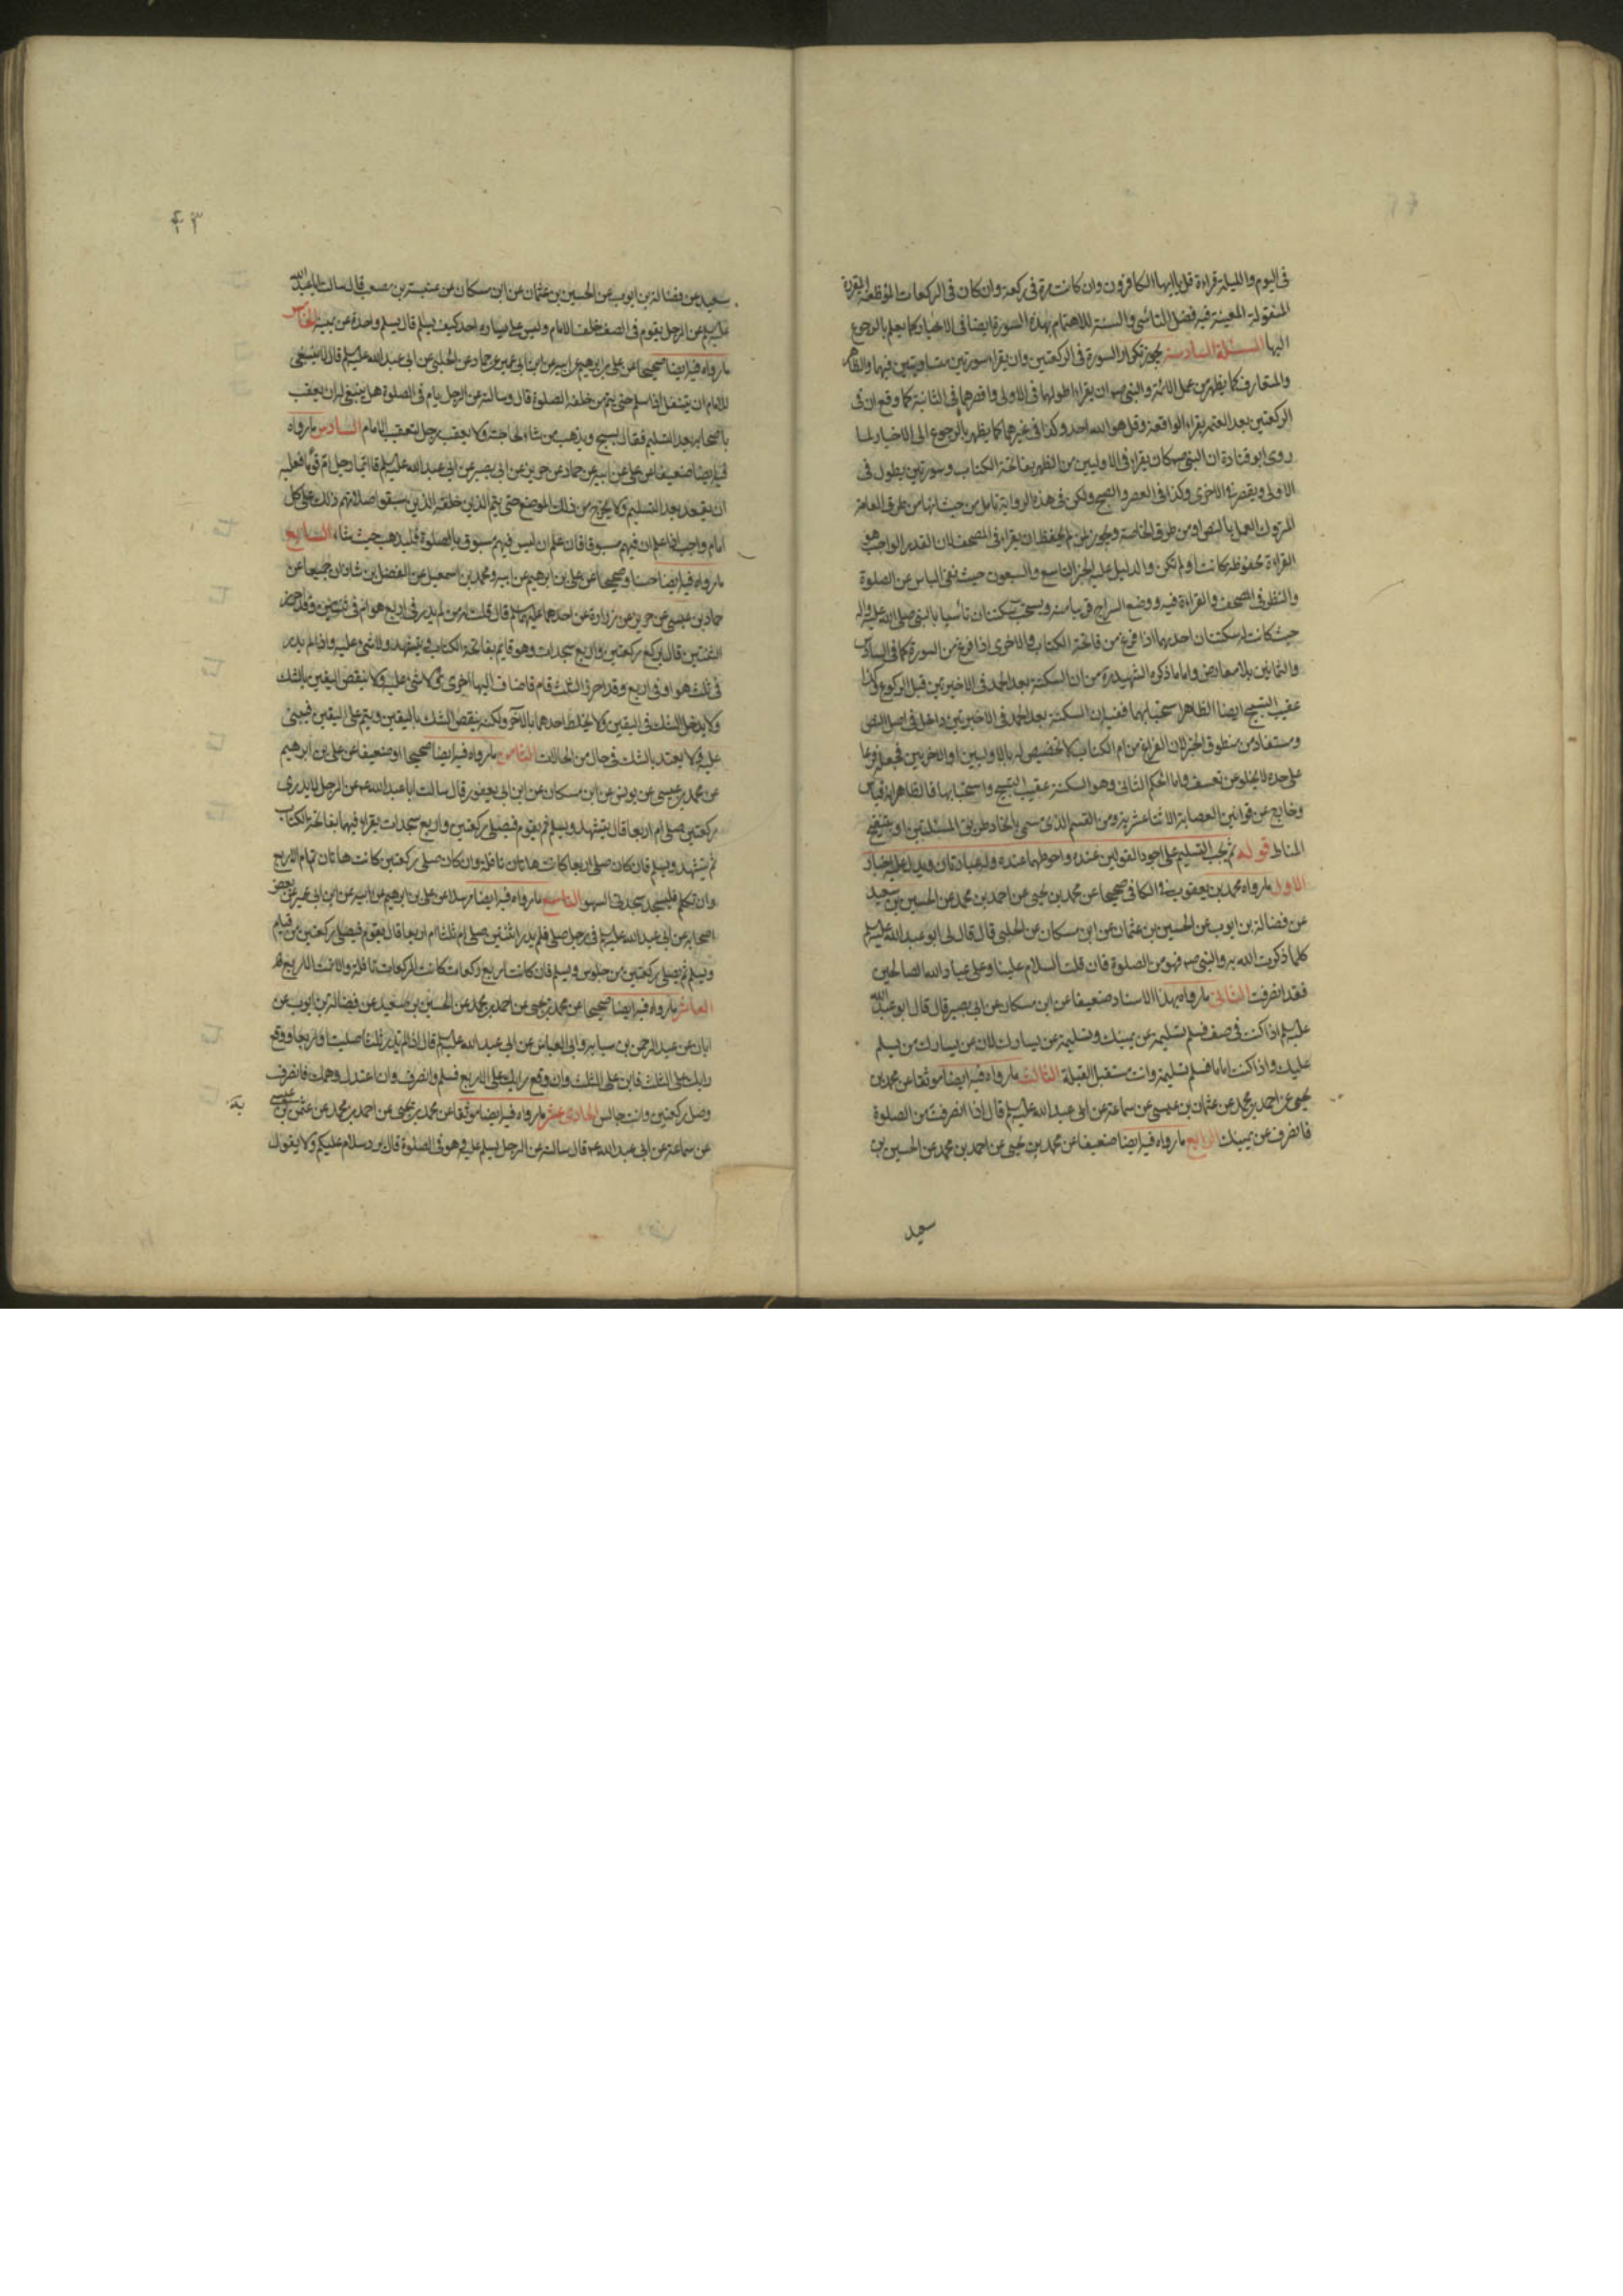 فى اليوم والليلة قراءة قل يا ايها الكافرون وان كانت مرة فى ركعة وان كان فى الركعات الموظفة المقررة
المنقولة المعينة فيه فضل التأسى والسنة للاهتمام بهذه السورة ايضا فى الاخبار كما يعلم بالرجوع
اليها المسئلة السادسة يجوز تكرار السورة فى الركعتين وان يقراء سورتين متساويتين فيهما والظاهر
والمتعارف كما يظهر من عمل الائمة والنبى صم ان يقراء اطولهما فى الاولى واقصرهما فى الثانية كما وقع ان فى
الركعتين بعد العتمة يقراء الواقعة وقل هو الله احد وكذا فى غيرهما كما يظهر بالرجوع الى الاخبار لما
روى ابو قتادة ان النبى صم كان يقراء فى الاوليين من الظهر بفاتحة الكتاب وسورتين يطول فى
الاولى ويقصر فى الاخرى وكذا فى العصر والصبح ولكن فى هذه الرواية تامل من حيث انها من طرق العامة
المتروك العمل بالنص او من طرق الخاصة ويجوز لمن لم يحفظ ان يقراء فى المصحف لان القدر الواجب هو
القراءة محفوظة كانت او لم تكن والدليل عليه الخبر التاسع والسبعون حيث نفى الباس عن الصلوة
والنظر فى المصحف والقراءة فيه ووضع السراج قريبا منه ويستحب سكتتان تأسيا بالنبى صلى الله عليه واله
حيث كانت له سكتتان احديهما اذا فرغ من فاتحة الكتاب والاخرى اذا فرغ من السورة كما فى السادس
والثمانين بلا معارض واما ما ذكره الشهيد ره من ان السكتة بعد الحمد فى الاخيرتين قبل الركوع وكذا
عقيب التسبيح ايضا الظاهر استحبابهما ففيه ان السكتة بعد الحمد فى الاخيرتين داخل فى اصل النص
ومستفاد من منطوق الخبر لان الفراغ من ام الكتاب لا تخصيص له بالاوليين او الاخريين فجعله فرعا
على حده لا يخلو عن تعسف واما الحكم الثانى وهو السكتة عقيب التسبيح واستحبابها فالظاهر انه قياس
وخارج عن قوانين العصابة الاثنا عشرية ومن القسم الذى مسمى باتحاد طريق المسئلتين او بتنقيح
المناط قوله ثم يجب التسليم على اجود القولين عنده واحوطهما عنده وله عبارتان ويدل عليه اخبار
الاول ما رواه محمد بن يعقوب فى الكافى صحيحا عن محمد بن يحيى عن احمد بن محمد عن الحسين بن سعيد
عن فضالة بن ايوب عن الحسين بن عثمان عن ابن مسكان عن الحلبى قال قال لى ابو عبد الله عليه السلم
كلما ذكرت الله به والنبى صم فهو من الصلوة فان قلت السلام علينا وعلى عباد الله الصالحين
فقد انصرفت الثانى ما رواه بهذا الاسناد ضعيفا عن ابن مسكان عن ابى بصير قال قال ابو عبد الله
عليه السلم اذا كنت فى صف فسلم تسليمة عن يمينك وتسليمة عن يسارك لان عن يسارك من يسلم
عليك واذا كنت اماما فسلم تسليمة وانت مستقبل القبلة الثالث ما رواه فيه ايضا موثقا عن محمد بن
يحيى عن احمد بن محمد عن عثمان بن عيسى عن سماعة عن ابى عبد الله عليه السلم قال اذا انصرفت من الصلوة
فانصرف عن يمينك الرابع ما رواه فيه ايضا ضعيفا عن محمد بن يحيى عن احمد بن محمد عن الحسين بن
سعيد
۴۳
سعيد عن فضالة بن ايوب عن الحسين بن عثمان عن ابن مسكان عن عنبسة بن مصعب قال سالت ابا عبد الله
عليه السلم عن الرجل يقوم فى الصف خلف الامام وليس على يساره احد كيف يسلم قال يسلم واحدة عن يمينه الخامس
ما رواه فيه ايضا صحيحا عن على بن ابرهيم عن ابيه عن ابن ابى عمير عن حماد عن الحلبى عن ابى عبد الله عليه السلم قال لا ينبغى
للامام ان يتنفل اذا سلم حتى يتم من خلفه الصلوة قال وسالته عن الرجل يام فى الصلوة هل ينبغى له ان يعقب
باصحابه بعد التسليم فقال يسبح ويذهب من شاء لحاجته ولا يعقب رجل لتعقيب الامام السادس ما رواه
فيه ايضا ضعيفا عن على عن ابيه عن حماد عن حريز عن ابى بصير عن ابى عبد الله عليه السلم قال ايما رجل ام قوما فعليه
ان يقعد بعد التسليم ولا يخرج من ذلك الموضع حتى يتم الذين خلفه الذين سبقوا صلاتهم ذلك على كل
امام واجب اذا علم ان فيهم مسبوقا فان علم ان ليس فيهم مسبوق بالصلوة فليذهب حيث شاء السابع
ما رواه فيه ايضا حسنا وصحيحا عن على بن ابرهيم عن ابيه ومحمد بن اسمعيل عن الفضل بن شاذان جميعا عن
حماد بن عيسى عن حريز عن زرارة عن احدهما عليهما السلم قال قلت له من لم يدر فى اربع هو ام فى ثنتين وقد احرز
الثنتين قال يركع ركعتين واربع سجدات وهو قايم بفاتحة الكتاب ويتشهد ولا شئ عليه واذا لم يدر
فى ثلث هو او فى اربع وقد احرز الثلث قام فاضاف اليها اخرى ولا شئ عليه ولا ينقض اليقين بالشك
ولا يدخل الشك فى اليقين ولا يخلط احدهما بالآخر ولكنه ينقض الشك باليقين ويتم على اليقين فيبنى
عليه ولا يعتد بالشك فى حال من الحالات الثامن ما رواه فيه ايضا صحيحا او ضعيفا عن على بن ابرهيم
عن محمد بن عيسى عن يونس عن ابن مسكان عن ابن ابى يعفور قال سالت ابا عبد الله ع عن الرجل لا يدرى
ركعتين صلى ام اربعا قال يتشهد ويسلم ثم يقوم فيصلى ركعتين واربع سجدات يقراء فيهما بفاتحة الكتاب
ثم يتشهد ويسلم فان كان صلى اربعا كانت هاتان نافلة وان كان صلى ركعتين كانت هاتان تمام الاربع
وان تكلم فليسجد سجدتى السهو التاسع ما رواه فيه ايضا مرسلا عن على بن ابرهيم عن ابيه عن ابن ابى عمير عن بعض
اصحابه عن ابى عبد الله عليه السلم فى رجل صلى فلم يدر اثنتين صلى ام ثلثا ام اربعا قال يقوم فيصلى ركعتين من قيام
ويسلم ثم يصلى ركعتين من جلوس ويسلم فان كانت اربع ركعات كانت الركعات نافلة والا تمت الاربع
العاشر ما رواه فيه ايضا صحيحا عن محمد بن يحيى عن احمد بن محمد عن الحسين بن سعيد عن فضالة بن ايوب عن
ابان عن عبد الرحمن بن سيابة وابى العباس عن ابى عبد الله عليه السلم قال اذا لم تدر ثلثا صليت او اربعا ووقع
رايك على الثلث فابن على الثلث وان وقع رايك على الاربع فسلم وانصرف وان اعتدل وهمك فانصرف
وصل ركعتين وانت جالس الحادى عشر ما رواه فيه ايضا موثقا عن محمد بن يحيى عن احمد بن محمد عن عثمن بن عيسى
عن سماعة عن ابى عبد الله ع قال سالته عن الرجل يسلم عليه وهو فى الصلوة قال يرد سلام عليكم ولا يقول